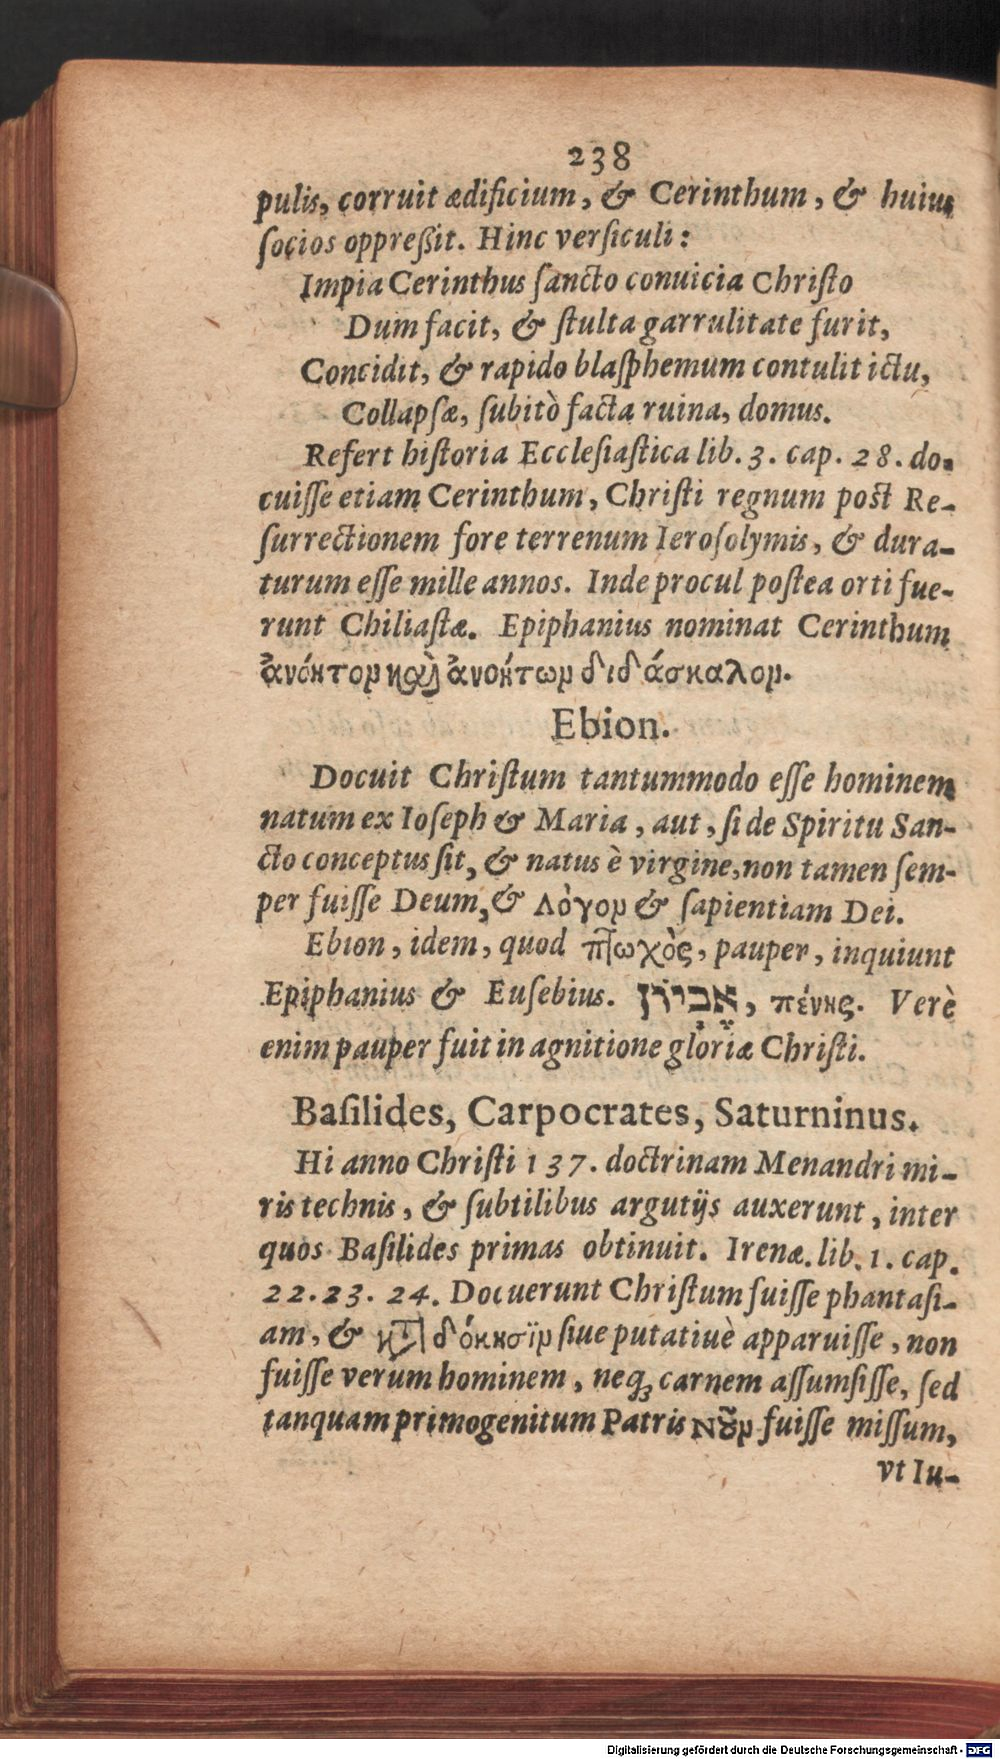 238
pulis, corruit ædificium, & Cerinthum, & huius
ſocios oppreßit. Hinc verſiculi:
Impia Cerinthus ſancto conuicia Chriſto
Dum facit, & ſtulta garrulitate furit,
Concidit, & rapido blaſphemum contulit ictu,
Collapſæ, ſubitò facta ruina, domus.
Refert hiſtoria Eccleſiaſtica lib. 3. cap. 28. do-
cuiſſe etiam Cerinthum, Chriſti regnum poſt Re-
ſurrectionem fore terrenum Ieroſolymis, & dura-
turum eſſe mille annos. Inde procul poſtea orti fue-
runt Chiliaſtæ. Epiphanius nominat Cerinthum
ἀνόητον καὶ ἀνοήτων διδάσκαλον.
Ebion.
Docuit Chriſtum tantummodo eſſe hominem
natum ex Ioſeph & Maria, aut, ſi de Spiritu San-
cto conceptus ſit, & natus è virgine, non tamen ſem-
per fuiſſe Deum, & Λόγον & ſapientiam Dei.
Ebion, idem, quod πτωχὸς, pauper, inquiunt
Epiphanius & Euſebius. אֶבְיוֹן, πένης. Verè
enim pauper fuit in agnitione gloriæ Chriſti.
Baſilides, Carpocrates, Saturninus.
Hi anno Chriſti 137. doctrinam Menandri mi-
ris technis, & ſubtilibus argutijs auxerunt, inter
quos Baſilides primas obtinuit. Irenæ. lib. 1. cap.
22. 23. 24. Docuerunt Chriſtum fuiſſe phantaſi-
am, & κατὰ δόκησϊν ſiue putatiuè apparuiſſe, non
fuiſſe verum hominem, neq; carnem aſſumſiſſe, ſed
tanquam primogenitum Patris νοῦν fuiſſe miſſum,
vt Iu-
Digitalisierung gefördert durch die Deutsche Forschungsgemeinschaft - DFG